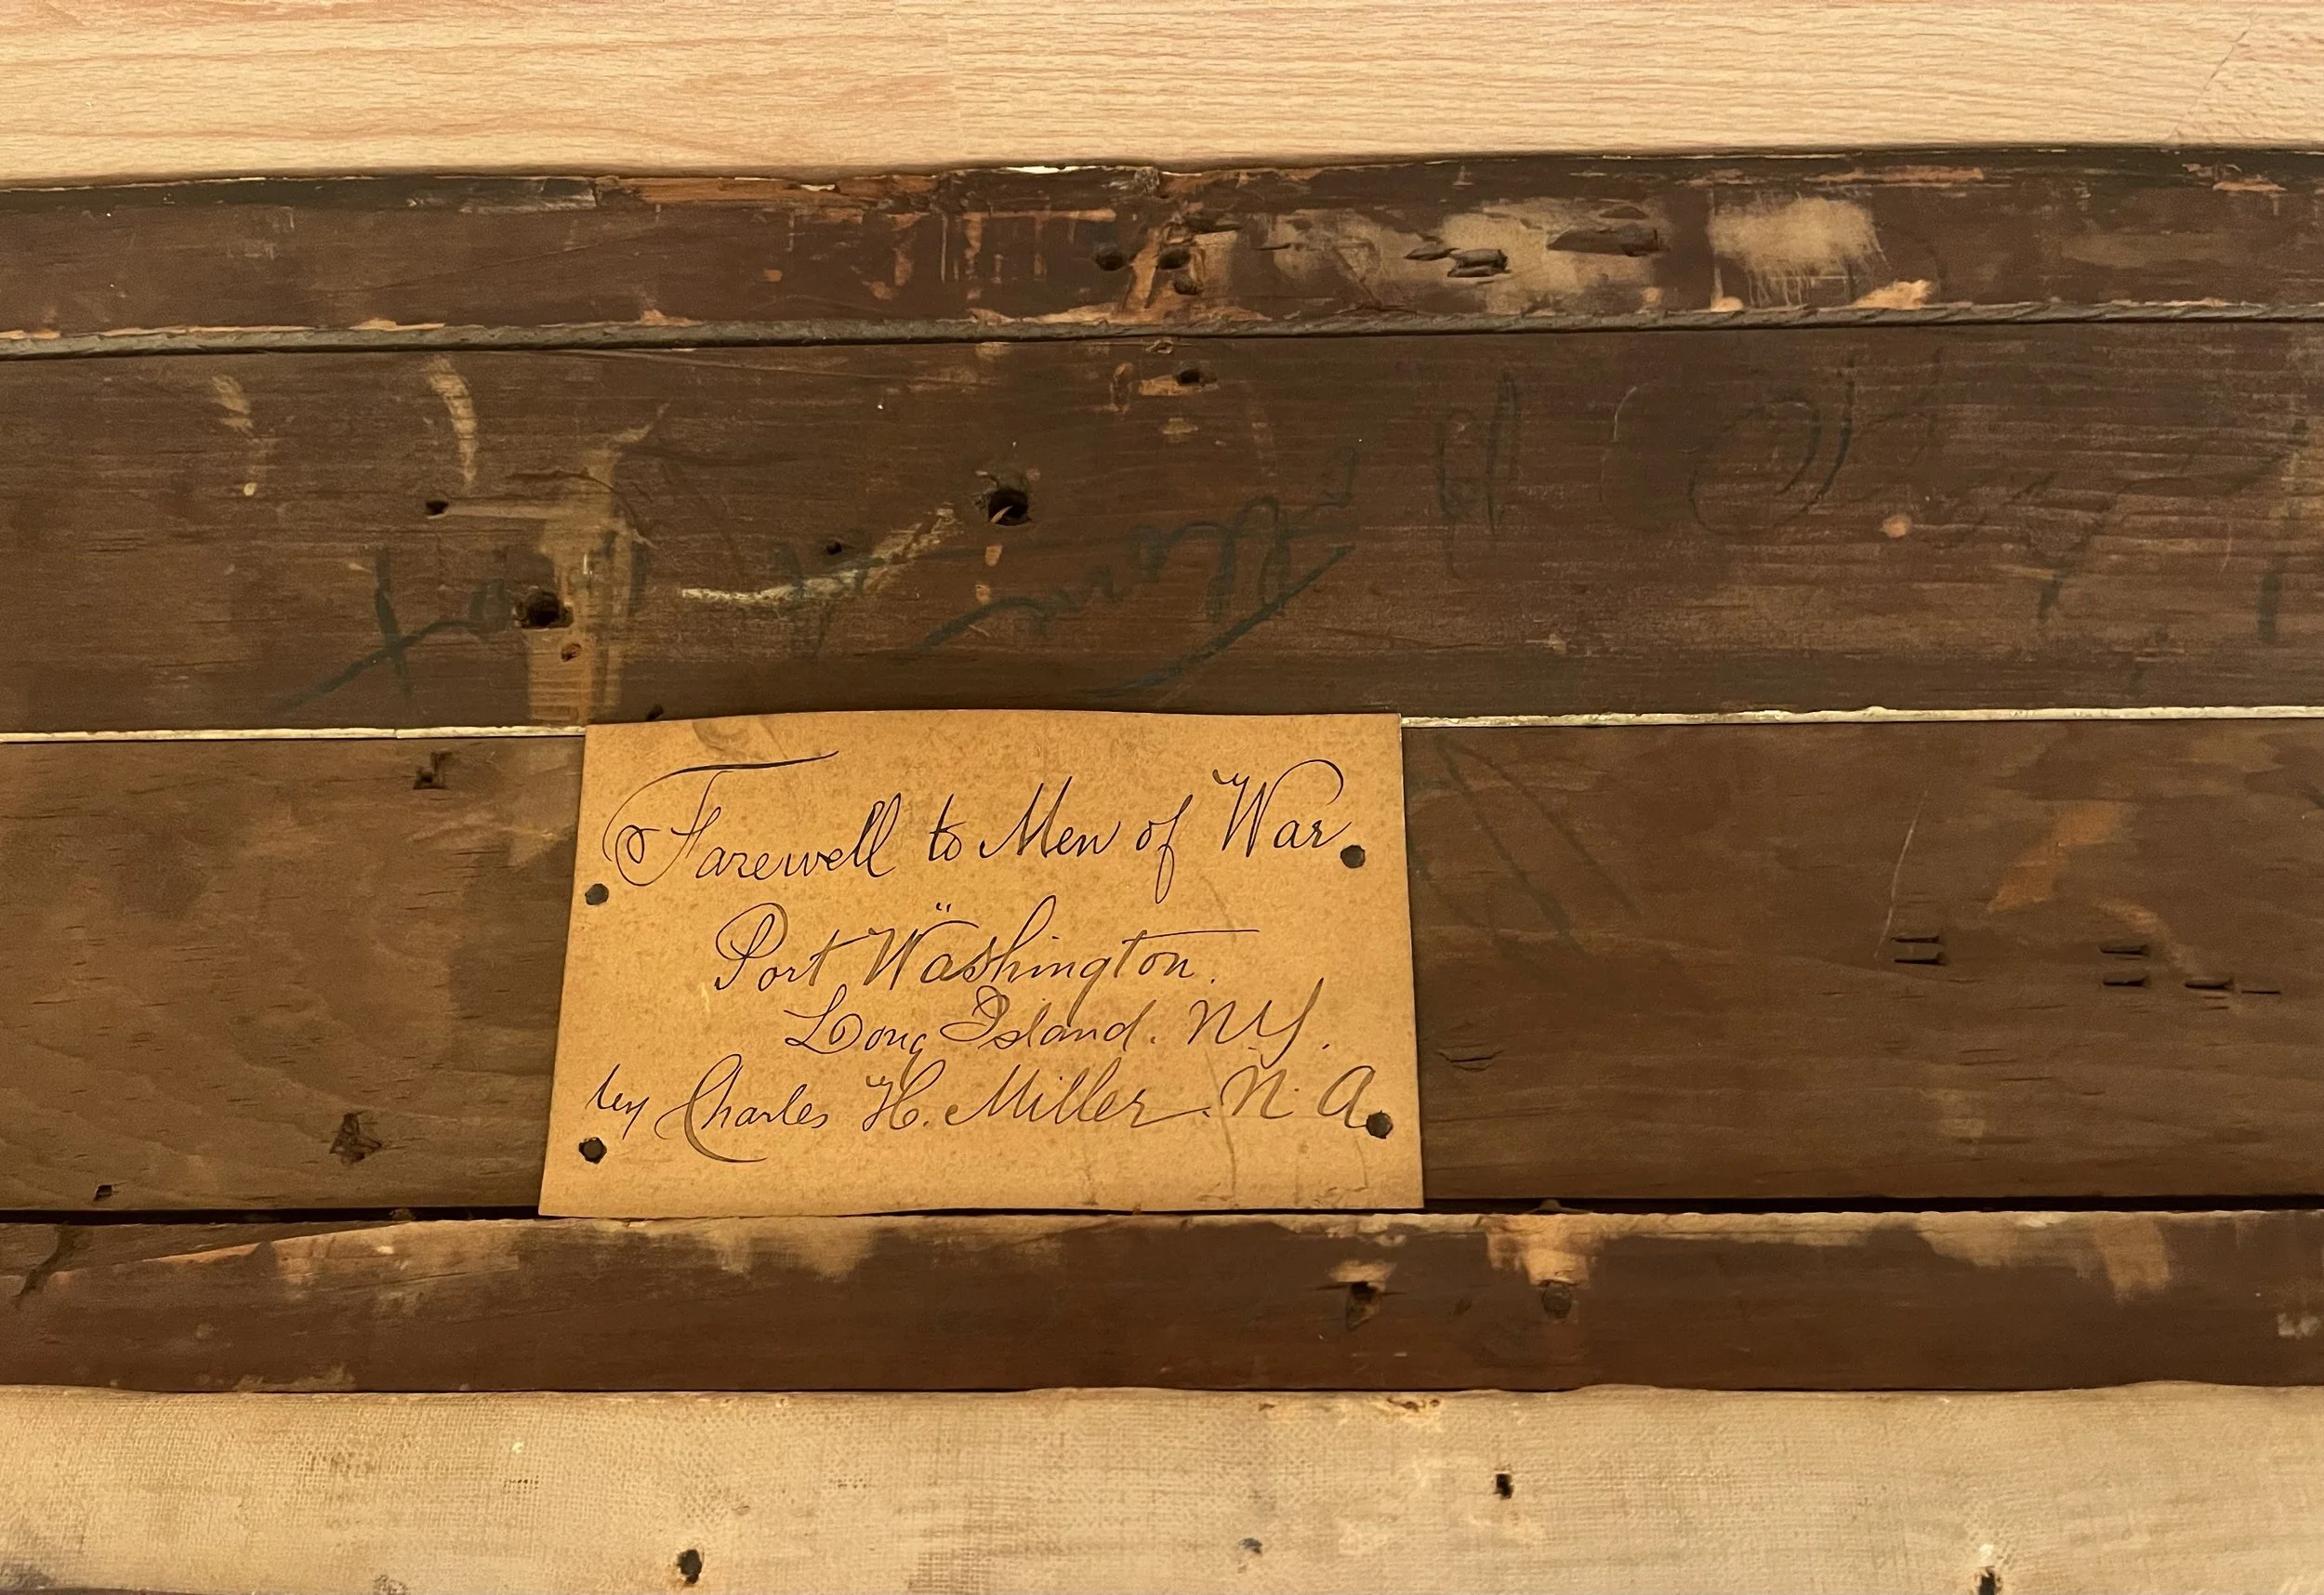 Farewell to Men of War
Port Washington.
Long Island. N.Y.
by Charles H. Miller. N. A.